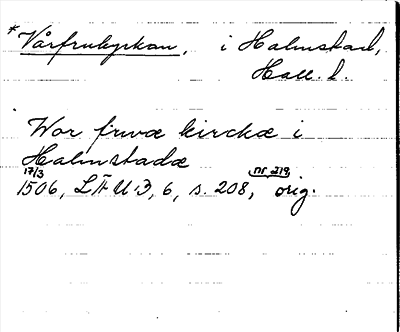 *Vårfrukyrkan, i Halmstad,
Hall. l.
Wor frwæ kirckæ i
Halmstadæ
17/3 nr 219,
1506, LÄU 3, 6, s. 208, orig.